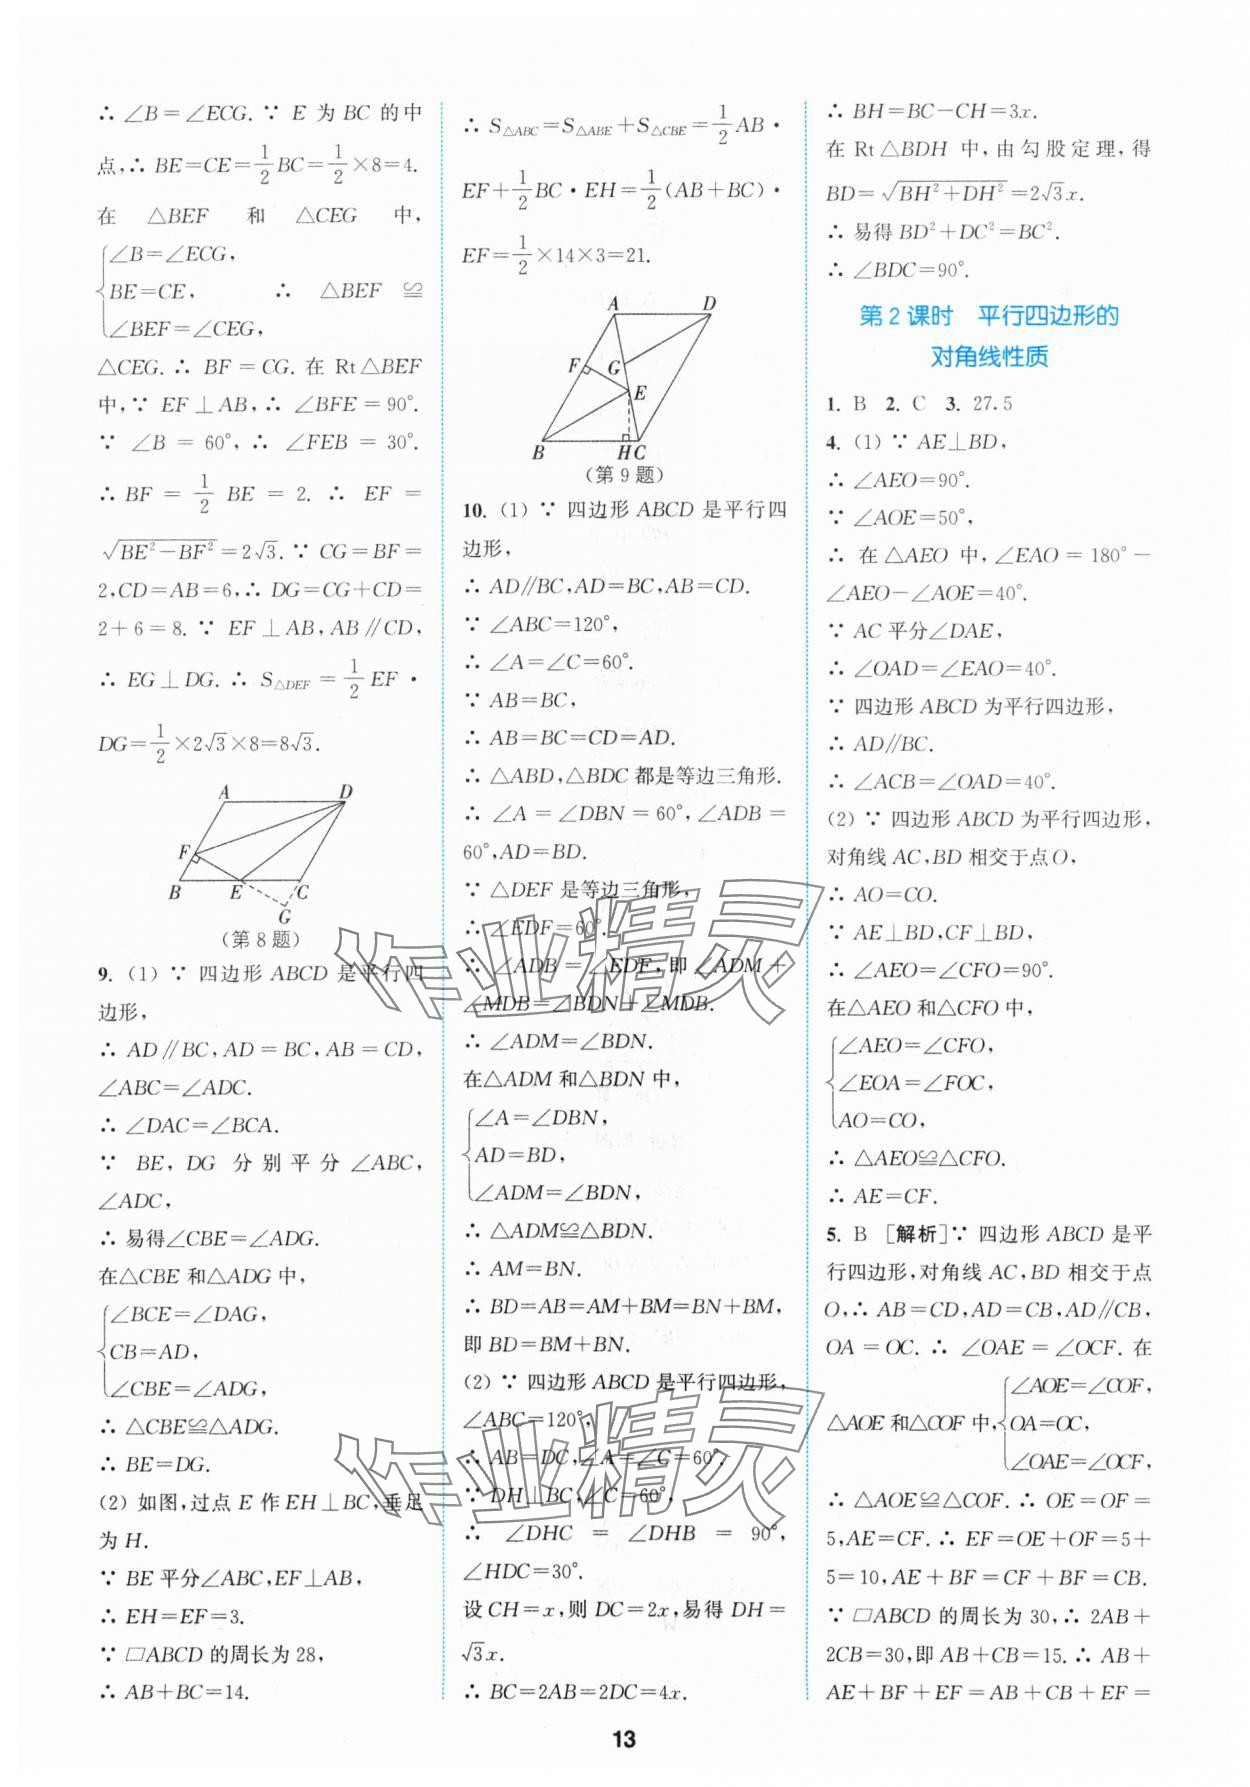 ∴ ∠B=∠ECG. ∵ E 为 BC 的中
点,∴ BE=CE=1/2BC=1/2×8=4.
在 △BEF 和 △CEG 中,
{∠B=∠ECG,
BE=CE, ∴ △BEF ≌
∠BEF=∠CEG,
△CEG. ∴ BF=CG. 在 Rt△BEF
中,∵ EF⊥AB,∴ ∠BFE=90°.
∵ ∠B=60°,∴ ∠FEB=30°.
∴ BF=1/2BE=2. ∴ EF=
√(BE²-BF²)=2√3. ∵ CG=BF=
2,CD=AB=6,∴ DG=CG+CD=
2+6=8. ∵ EF⊥AB,AB∥CD,
∴ EG⊥DG. ∴ S△DEF=1/2EF·
DG=1/2×2√3×8=8√3.
A D
F
B E C
G
(第 8 题)
9. (1) ∵ 四边形 ABCD 是平行四
边形,
∴ AD∥BC,AD=BC,AB=CD,
∠ABC=∠ADC.
∴ ∠DAC=∠BCA.
∵ BE,DG 分别平分∠ABC,
∠ADC,
∴ 易得∠CBE=∠ADG.
在△CBE 和△ADG 中,
{∠BCE=∠DAG,
CB=AD,
∠CBE=∠ADG,
∴ △CBE≌△ADG.
∴ BE=DG.
(2) 如图,过点 E 作 EH⊥BC,垂足
为 H.
∵ BE 平分∠ABC,EF⊥AB,
∴ EH=EF=3.
∵ ▱ABCD 的周长为 28,
∴ AB+BC=14.
∴ S△ABC=S△ABE+S△CBE=1/2AB·
EF+1/2BC·EH=1/2(AB+BC)·
EF=1/2×14×3=21.
A D
F G
E
B H C
(第 9 题)
10. (1) ∵ 四边形 ABCD 是平行四
边形,
∴ AD∥BC,AD=BC,AB=CD.
∵ ∠ABC=120°,
∴ ∠A=∠C=60°.
∵ AB=BC,
∴ AB=BC=CD=AD.
∴ △ABD,△BDC 都是等边三角形.
∴ ∠A=∠DBN=60°,∠ADB=
60°,AD=BD.
∵ △DEF 是等边三角形,
∴ ∠EDF=60°.
∴ ∠ADB=∠EDF,即∠ADM+
∠MDB=∠BDN+∠MDB.
∴ ∠ADM=∠BDN.
在△ADM 和△BDN 中,
{∠A=∠DBN,
AD=BD,
∠ADM=∠BDN,
∴ △ADM≌△BDN.
∴ AM=BN.
∴ BD=AB=AM+BM=BN+BM,
即 BD=BM+BN.
(2) ∵ 四边形 ABCD 是平行四边形,
∠ABC=120°,
∴ AB=DC,∠A=∠C=60°.
∵ DH⊥BC,∠C=60°,
∴ ∠DHC=∠DHB=90°,
∠HDC=30°.
设 CH=x,则 DC=2x,易得 DH=
√3x.
∴ BC=2AB=2DC=4x.
∴ BH=BC-CH=3x.
在 Rt△BDH 中,由勾股定理,得
BD=√(BH²+DH²)=2√3x.
∴ 易得 BD²+DC²=BC².
∴ ∠BDC=90°.
第 2 课时 平行四边形的
对角线性质
1. B 2. C 3. 27.5
4. (1) ∵ AE⊥BD,
∴ ∠AEO=90°.
∵ ∠AOE=50°,
∴ 在△AEO 中,∠EAO=180°-
∠AEO-∠AOE=40°.
∵ AC 平分∠DAE,
∴ ∠OAD=∠EAO=40°.
∵ 四边形 ABCD 为平行四边形,
∴ AD∥BC.
∴ ∠ACB=∠OAD=40°.
(2) ∵ 四边形 ABCD 为平行四边形,
对角线 AC,BD 相交于点 O,
∴ AO=CO.
∵ AE⊥BD,CF⊥BD,
∴ ∠AEO=∠CFO=90°.
在△AEO 和△CFO 中,
{∠AEO=∠CFO,
∠EOA=∠FOC,
AO=CO,
∴ △AEO≌△CFO.
∴ AE=CF.
5. B [解析]∵ 四边形 ABCD 是平
行四边形,对角线 AC,BD 相交于点
O,∴ AB=CD,AD=CB,AD∥CB,
OA=OC. ∴ ∠OAE=∠OCF. 在
{∠AOE=∠COF,
△AOE 和△COF 中, OA=OC,
∠OAE=∠OCF,
∴ △AOE≌△COF. ∴ OE=OF=
5,AE=CF. ∴ EF=OE+OF=5+
5=10,AE+BF=CF+BF=CB.
∵ ▱ABCD 的周长为 30,∴ 2AB+
2CB=30,即 AB+CB=15. ∴ AB+
AE+BF+EF=AB+CB+EF=
13
作业精灵
作业精灵